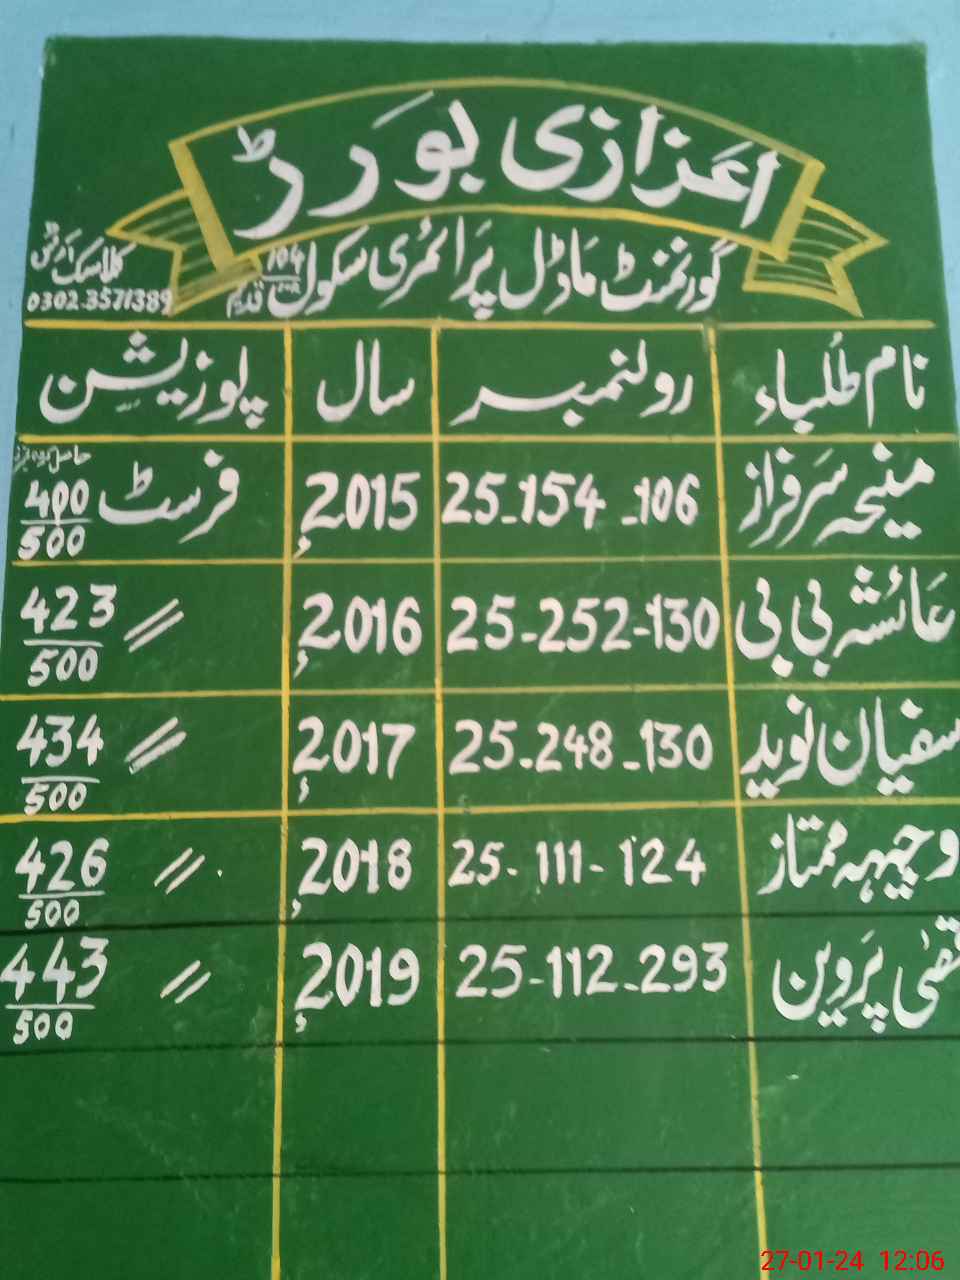 اعزازی بورڈ
گورنمنٹ ماڈل پرائمری سکول 104 قدیم
کلاسک آرٹس
0302.3571389
نام طلباء رولنمبر سال پوزیشن
حاصل کردہ نمبر
منیحہ سرفراز 25-154-106 2015ء فرسٹ 400/500
عائشہ بی بی 25-252-130 2016ء // 423/500
سفیان نوید 25-248-130 2017ء // 434/500
وجیہہ ممتاز 25-111-124 2018ء // 426/500
پروین 25-112-293 2019ء // 443/500
27-01-24 12:06